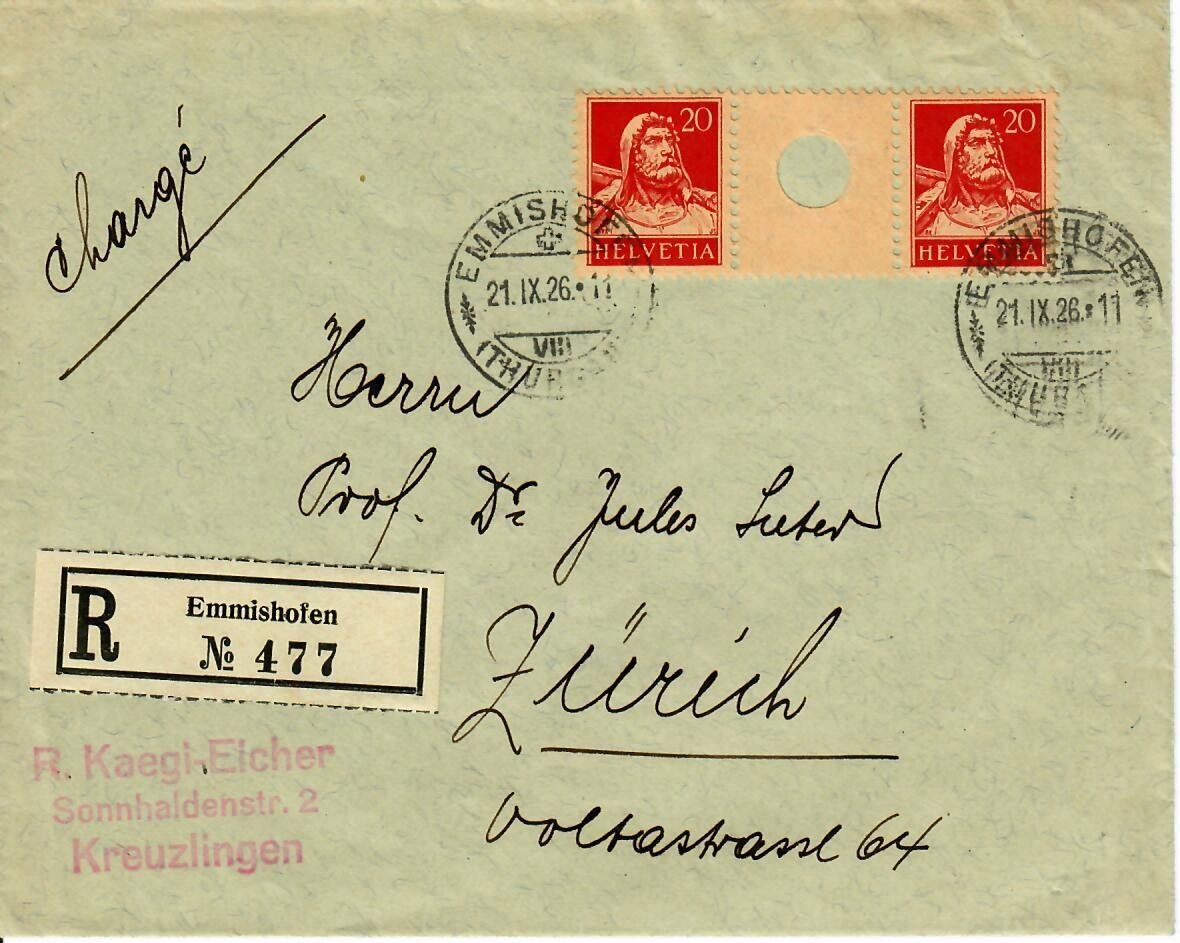 20
20
HELVETIA
HELVETIA
EMMISHOFEN
21.IX.26.•11
VIII
(THUR
EMMISHOFEN
21.IX.26.•11
VIII
(THUR
chargé
Herrn
Prof. Dr Jules Suter
Zürich
Voltastrasse 64
R
Emmishofen
№ 477
R. Kaegi-Eicher
Sonnhaldenstr. 2
Kreuzlingen